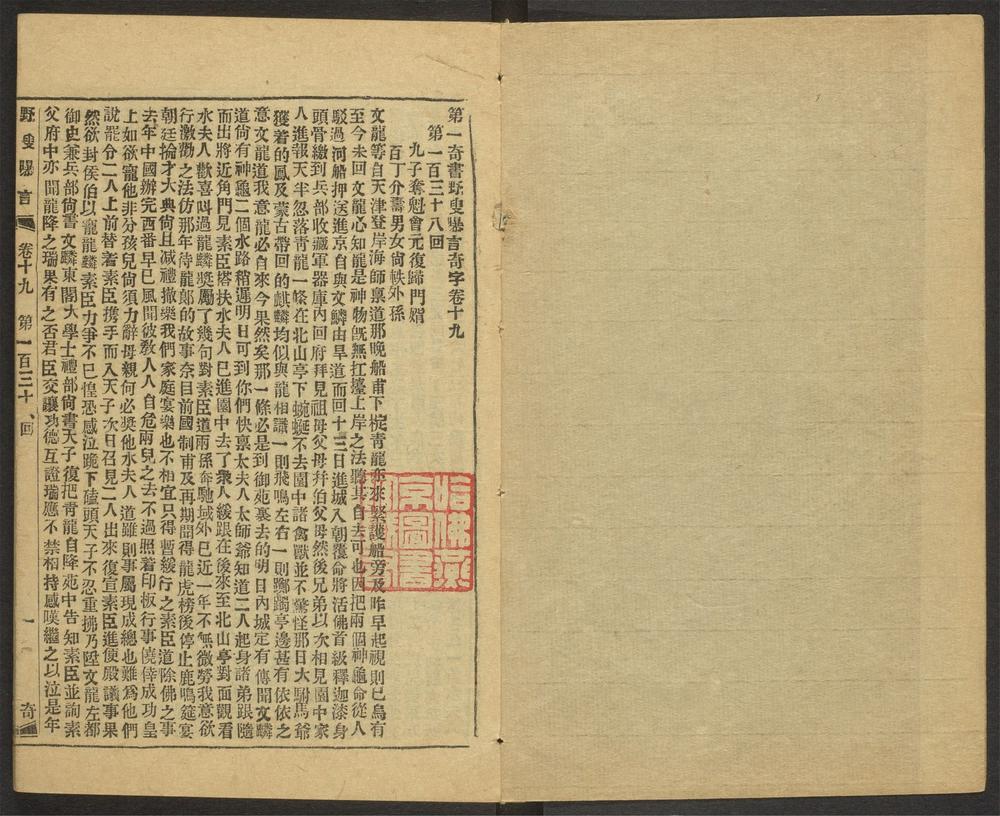 第一奇書野叟曝言奇字卷十九
第一百三十八回
九子奪魁會元復歸門婿
百丁介壽男女尙軼外孫
文龍等自天津登岸海師禀道那晚船甫下椗靑龍亦來緊護船旁及昨早起視則已烏有
至今未回文龍心知龍是神物旣無扛擡上岸之法聽其自去可也因把兩個神龜命從人
駁過河船押送進京自與文麟由旱道而回十三日進城入朝覆命將活佛首級釋迦漆身
頭骨繳到兵部收藏軍器庫內回府拜見祖母父母幷伯父母然後兄弟以次相見園中家
人進報天半忽落靑龍一條在北山亭下蜿蜒不去園中諸禽獸並不驚怪那日大駙馬爺
獲着的鳳及蒙古帶回的麒麟均似與龍相識一則飛鳴左右一則躑躅亭邊甚有依依之
意文龍道我意龍必自來今果然矣那一條必是到御苑裏去的明日內城定有傳聞文麟
道尙有神龜二個水路稍遲明日可到你們快禀太夫人太師爺知道二人起身諸弟跟隨
而出將近角門見素臣搭扶水夫人已進園中去了衆人緩跟在後來至北山亭對面觀看
水夫人歡喜叫過龍麟獎屬了幾句對素臣道兩孫奔馳域外已近一年不無微勞我意欲
行激勸之法仿那年待龍郎的故事奈目前國制甫及再期聞得龍虎榜後停止鹿鳴筵宴
朝廷掄才大典尙且减禮撤樂我們家庭宴樂也不相宜只得暫緩行之素臣道除佛之事
去年中國辦完西番早已風聞彼敎人人自危兩兒之去不過照着印板行事僥倖成功皇
上如欲寵他非分孩兒尙須力辭母親何必獎他水夫人道雖則事屬現成總也難爲他們
說罷令二人上前替着素臣携手而入天子次日召見二人出來復宣素臣進便殿議事果
然欲封侯伯以寵龍麟素臣力爭不已惶恐感泣跪下磕頭天子不忍重拂乃陞文龍左都
御史兼兵部尙書文麟東閣大學士禮部尙書天子復把靑龍自降苑中告知素臣並詢素
父府中亦聞龍降之瑞果有之否君臣交讓功德互證瑞應不禁相持感嘆繼之以泣是年
野叟曝言
卷十九 第一百三十 回
一
奇
哈佛燕